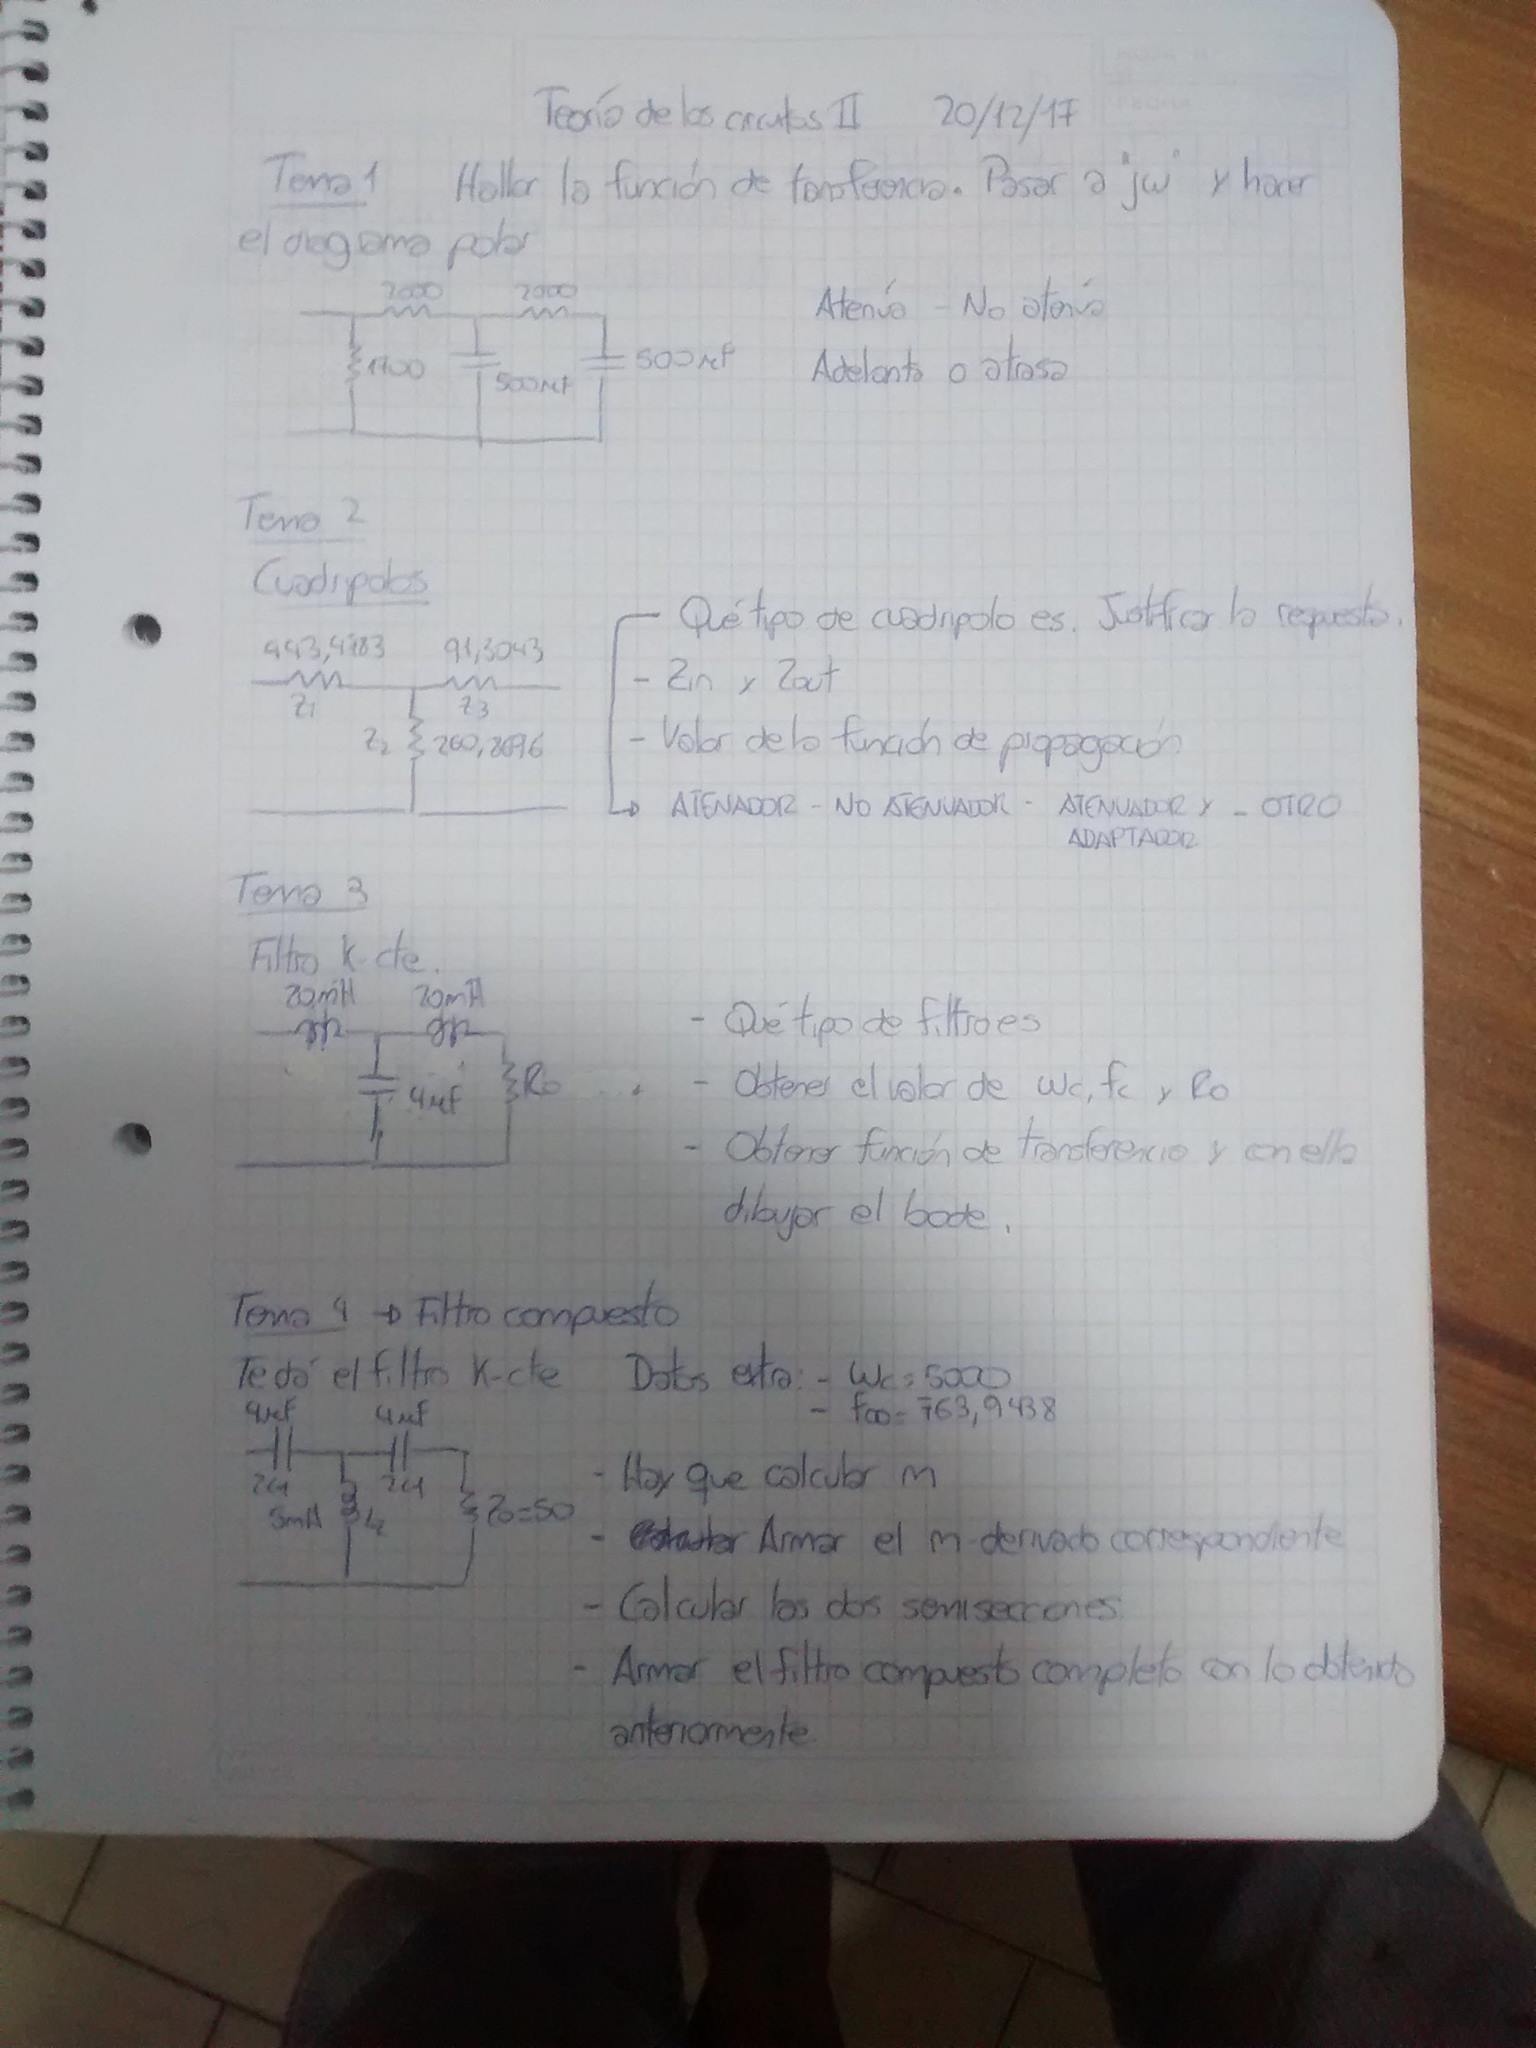 Teoría de los circuitos II 20/12/17
Tema 1 Hallar la función de transferencia. Pasar a "jw" y hacer
el diagrama polar
2000 2000
1700 500μf 500μf
Atenúa - No atenúa
Adelanta o atrasa
Tema 2
Cuadripolos
443,4783 91,3043
Z1 Z3
Z2 260,8696
Qué tipo de cuadripolo es. Justificar la respuesta.
- Zin y Zout
- Valor de la función de propagación
ATENADOR - NO ATENUADOR - ATENUADOR Y - OTRO
ADAPTADOR
Tema 3
Filtro K-cte.
20mH 20mH
4μf R0
- Qué tipo de filtro es
- Obtener el valor de wc, fc y R0
- Obtener función de transferencia y con ella
dibujar el bode.
Tema 4 → Filtro compuesto
Te da el filtro K-cte Datos extra: - wc=5000
- f∞=763,9438
4μf 4μf
2C1 2C1
5mH L2 Z0=50
- Hay que calcular m
- Armar el m-derivado correspondiente
- Calcular las dos semisecciones
- Armar el filtro compuesto completo con lo obtenido
anteriormente